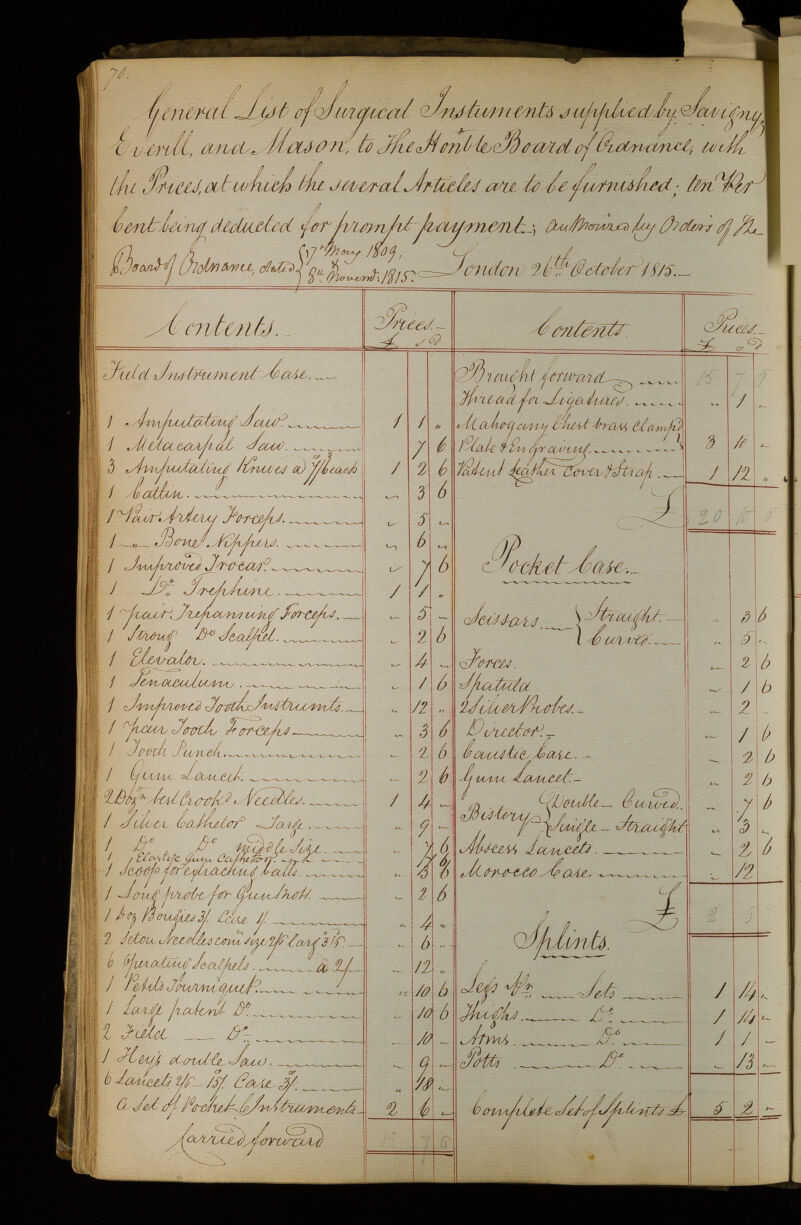 70.
General List of Surgical Instruments supplied by Savigny,
Everill, and Mason, to The Honble Board of Ordnance, with
the Prices, at which the several Articles are to be furnished; ten Per
Cent being deducted for prompt payment; authorized by Orders of The
Board of Ordnance, dated 7th May 1809, & 8th Novemr. 1815. London 26th October 1815.
Contents. Prices. £ s d
Field Instrument Case.
1 Amputating Saw. 1 1 "
1 Metacarpal Saw. 7 6
3 Amputating Knives a 7/6 each 1 2 6
1 Cattin. " 3 6
1 Pair Artery Forceps. " 5 "
1 " Bone Nippers. " 6 "
1 Improved Trocar. " 7 6
1 Do. Trephine. 1 1 "
1 pair Trepanning Forceps. " 5 "
1 Strong Do Scalpel. " 2 6
1 Elevator. " 4 "
1 Tenaculum. " 1 6
1 Improved Tooth Instrumts. " 12 "
1 pair Tooth Forceps " 3 6
1 Tooth Punch. " 2 6
1 Gum Lancet. " 2 6
2 Dozn best Crook'd Needles. 1 4 "
1 Silver Cathetor Large. " 9 "
1 Do Do middle Size. " 7 6
1 Elastic Gum Cathetor.
1 Scoop for extracting balls " 3 6
1 Long probe for Gunshots. " 2 6
1 Doz Bougies 3/. Case 1/. " 4 "
2 Seton Needles com size 2/6 Large 3/6. " 6 "
6 Operating Scalpels. a 2/ " 12 "
1 Petits Tourniquet. " 10 6
1 Large patent Do. " 10 6
2 Field Do " 10 "
1 Hey's double Saw. " 9 "
6 Lancets 2/6 15/. Case 3/. " 18 "
A Set of Pocket Instruments 2 6 "
Carried forward 15 7 6
Contents Prices. £ s d
Brought forward 15 7 6
Thread for Ligatures. " 1 "
Mahogany Chest brass Clamp'd
Plate & Engraving. 3 10 "
Patent Leather Cover & Strap. 1 12 "
£ 20 10 6
Pocket Case.
Scissars. Straight. " 3 6
Curved. " 5 "
Forces. " 2 6
Spatula " 1 6
2 Silver Probes. " 2 "
Director. " 1 6
Caustic Case. " 2 6
Gum Lancet. " 2 6
Bistory. Double Curved. " 7 6
Single Straight " 3 "
Abscess Lancets. " 2 6
Morocco Case. " 12
£ 2 6
Splints.
Legs Sets 1 14 "
Thighs. Do. 1 14 "
Arms. Do. 1 1 "
Potts Do. " 13 "
Complete Set of Splints £ 5 2 "